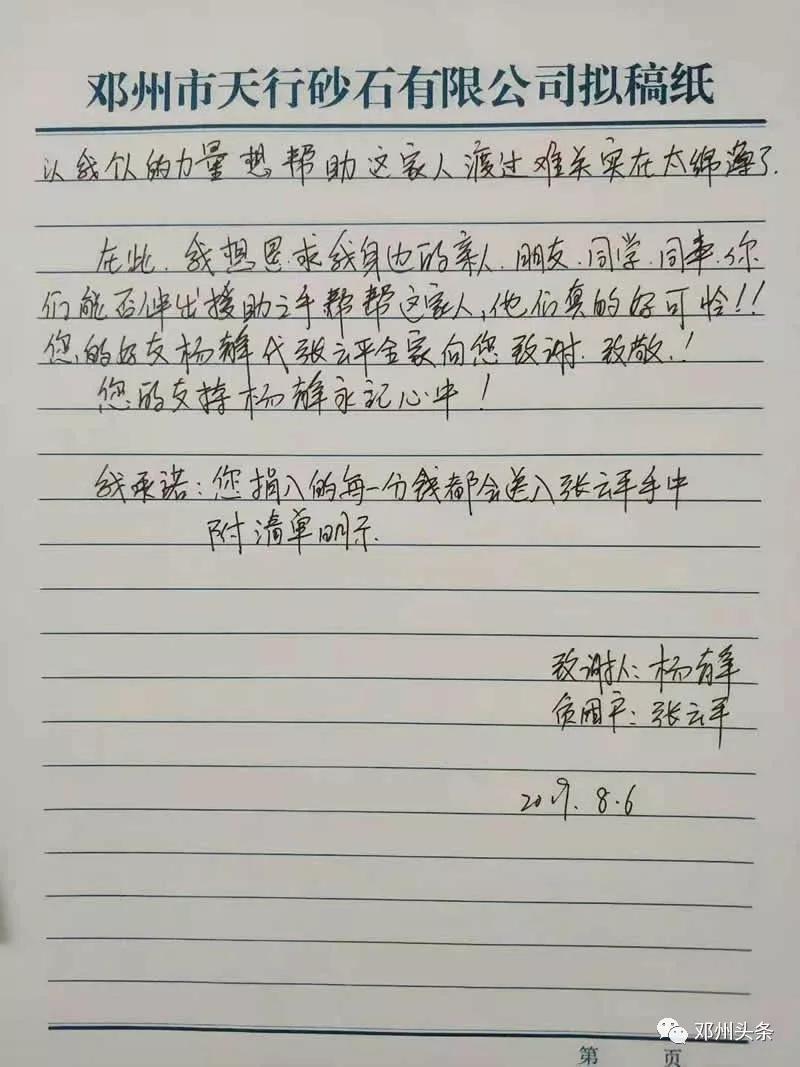 邓州市天行砂石有限公司拟稿纸
以我个人的力量想帮助这家人渡过难关实在太绵薄了.
在此.我想恳求我身边的亲人.朋友.同学.同事.你
们能否伸出援助之手帮帮这家人,他们真的好可怜!!
您的好友杨静代张云平全家向您致谢.致敬.!
您的支持杨静永记心中!
我承诺:您捐入的每一分钱都会送入张云平手中
附清单明示.
致谢人:杨静
贫困户:张云平
2019.8.6
邓州头条
第 页